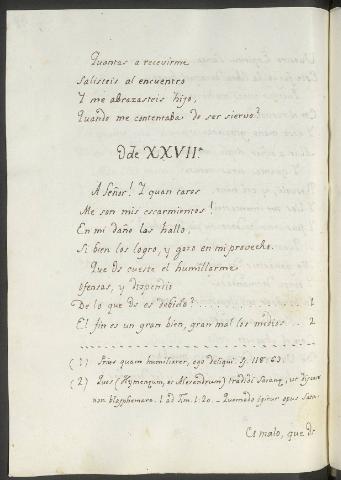 Quantas a recevirme
Salisteis al encuentro
Y me abrazasteis hijo,
Quando me contentaba de ser siervo?
Ode XXVII.ª
A Señor! Y quan caros
Me son mis escarmientos!
En mi daño las hallo,
Si bien los logro, y gozo en mi provecho.
Que os cueste el humillarme
Ofensas, y dispendio
De lo que os es debido? .............. 1
El fin es un gran bien, gran mal los medios .. 2
(1) Prius quam humiliarer, ego deliqui. 118.
(2) Quos (Hymeneum, et Alexandrum) tradidi Satanæ, ut discant
non blasphemare. 1 ad Tim. 1. 20. - Quomodo igitur opus Sata-
Es malo, que di